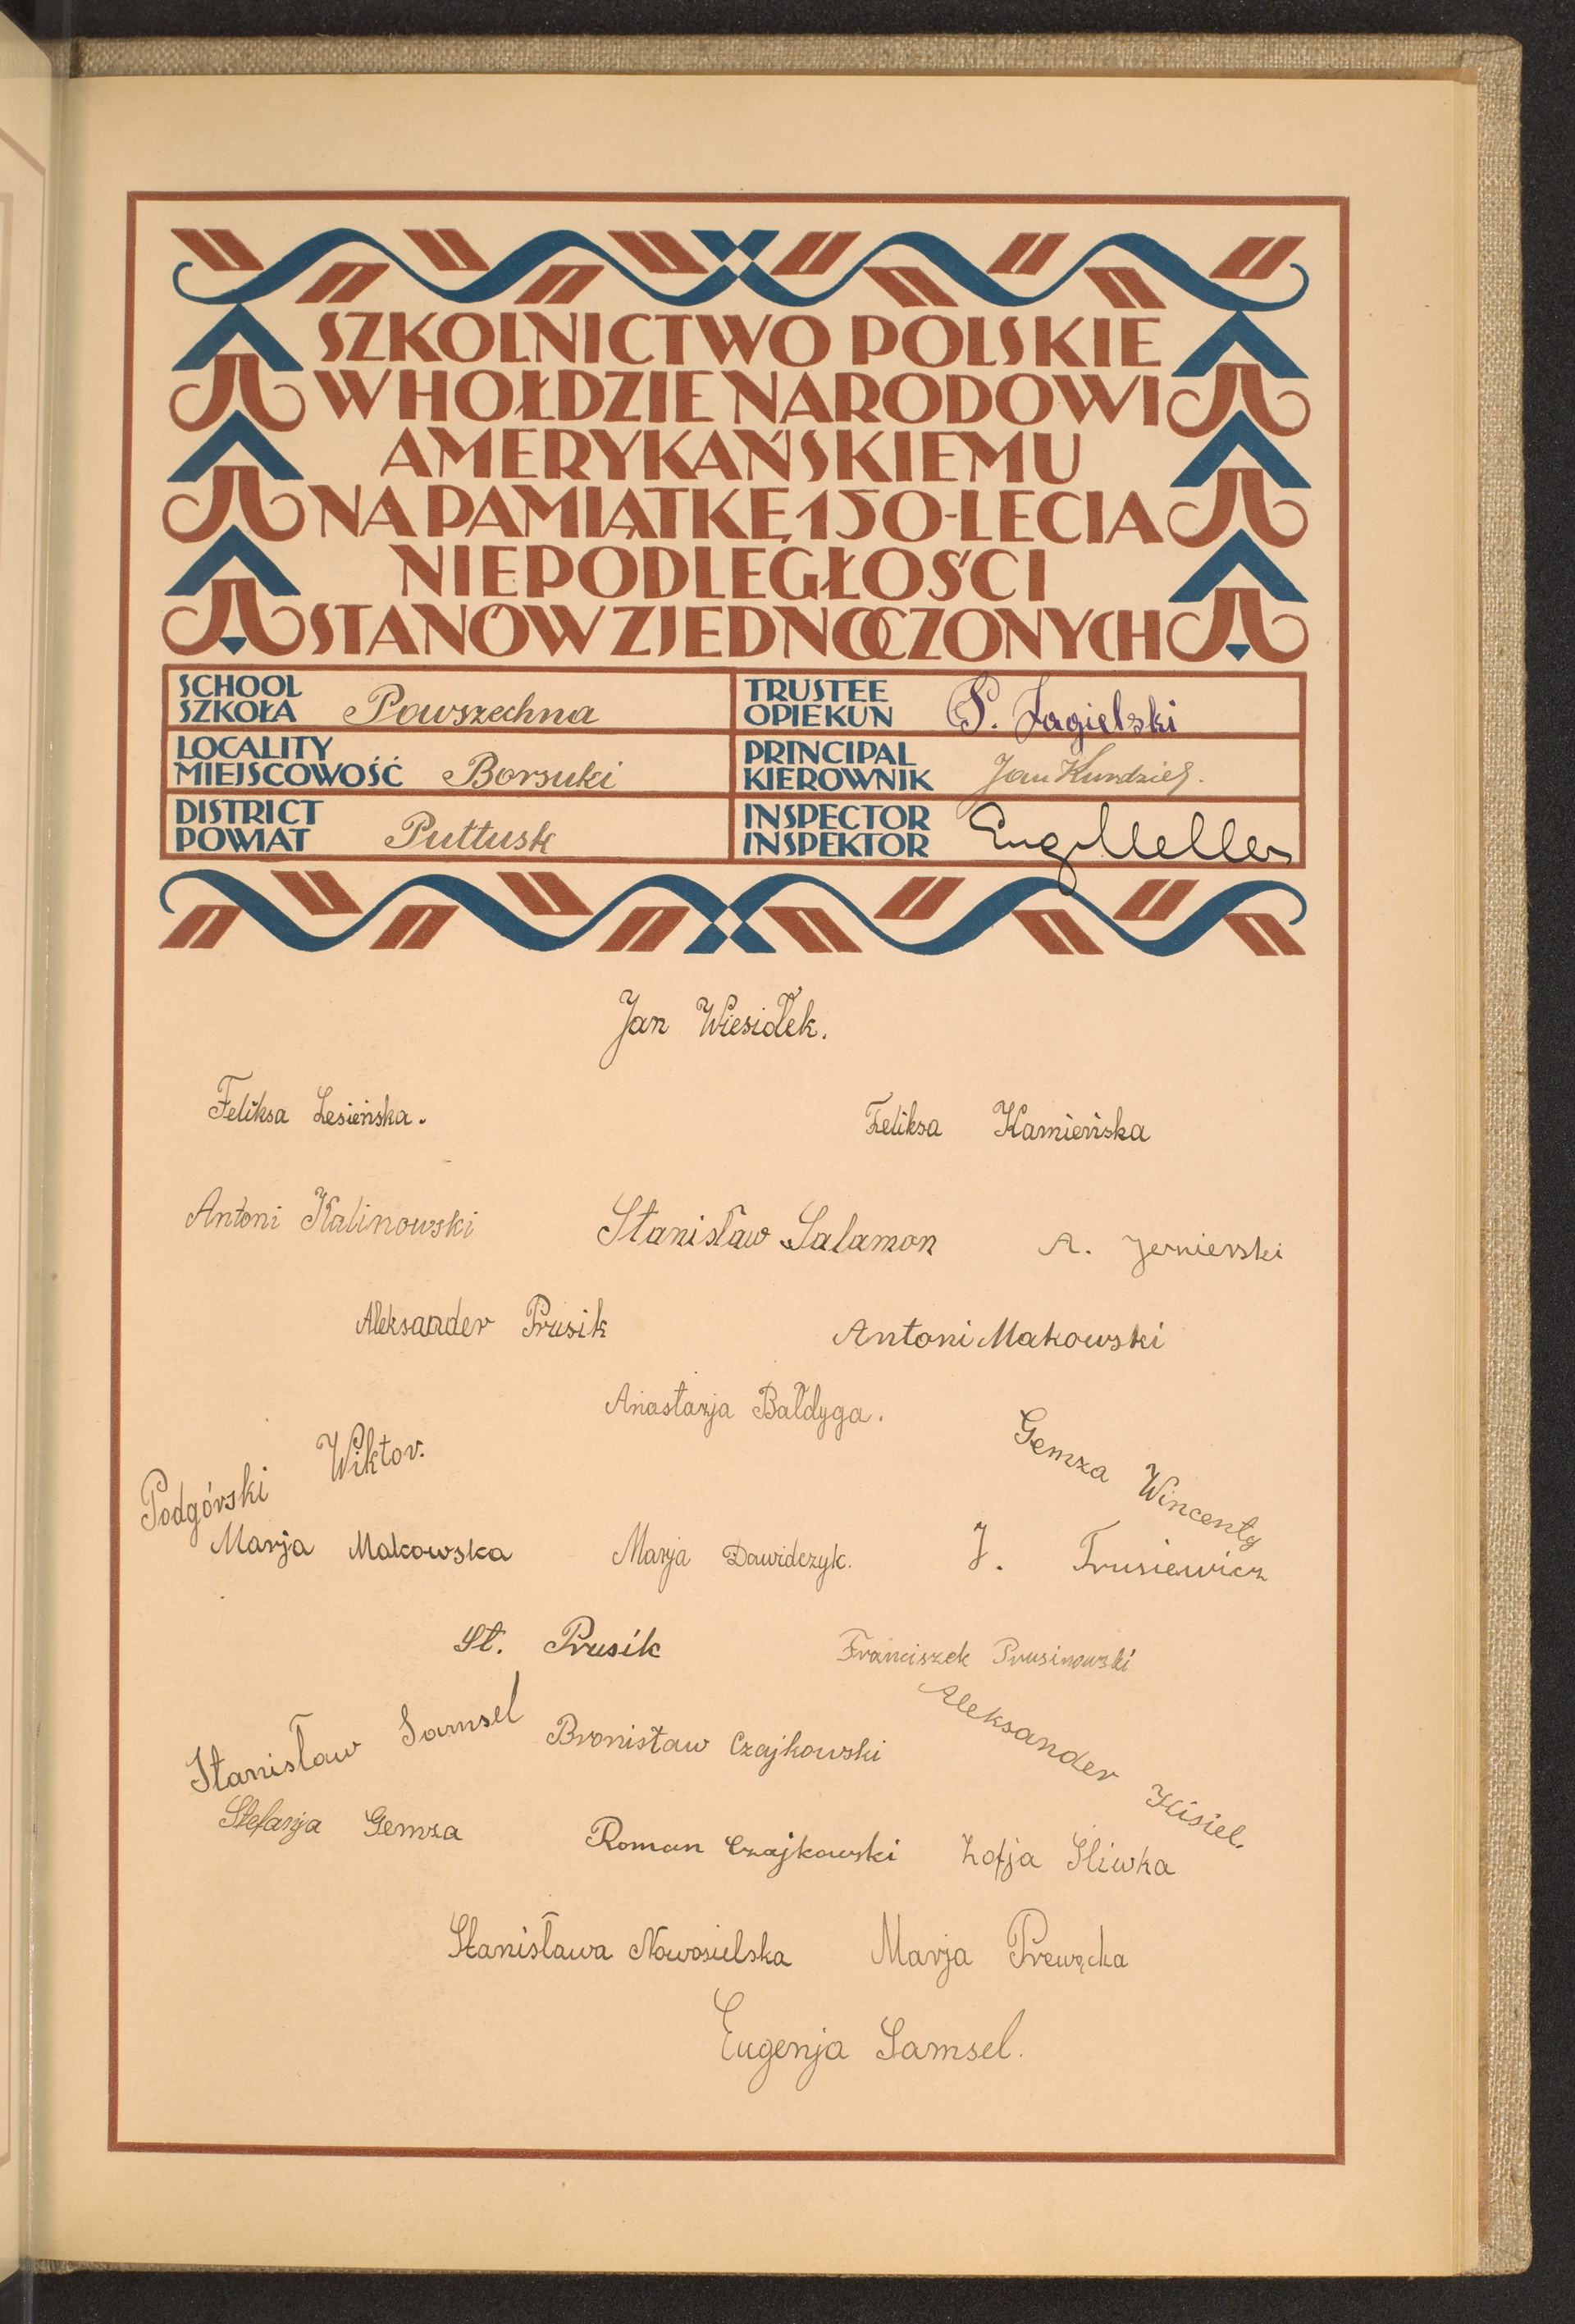 SZKOLNICTWO POLSKIE
W HOŁDZIE NARODOWI
AMERYKAŃSKIEMU
NA PAMIĄTKĘ 150-LECIA
NIEPODLEGŁOŚCI
STANÓW ZJEDNOCZONYCH
SCHOOL
SZKOŁA Powszechna
TRUSTEE
OPIEKUN P. Jagielski
LOCALITY
MIEJSCOWOŚĆ Borsuki
PRINCIPAL
KIEROWNIK Jan Kurdziel.
DISTRICT
POWIAT Pułtusk
INSPECTOR
INSPEKTOR Eug. Meller
Jan Wiesiołek.
Feliksa Lesieńska.
Feliksa Kamieńska
Antoni Kalinowski
Stanisław Salamon
A. Jernierski
Aleksander Prusik
Antoni Makowski
Anastazja Bałdyga.
Podgórski Wiktor.
Gemza Wincenty
Marja Makowska
Marja Dawidczyk.
J. Trusiewicz
St. Prusik
Franciszek Prusinowski
Stanisław Samsel
Bronisław Czajkowski
Aleksander Kisiel.
Stefanja Gemza
Roman Czajkowski
Zofja Śliwka
Stanisława Nowosielska
Marja Prewęcka
Eugenja Samsel.